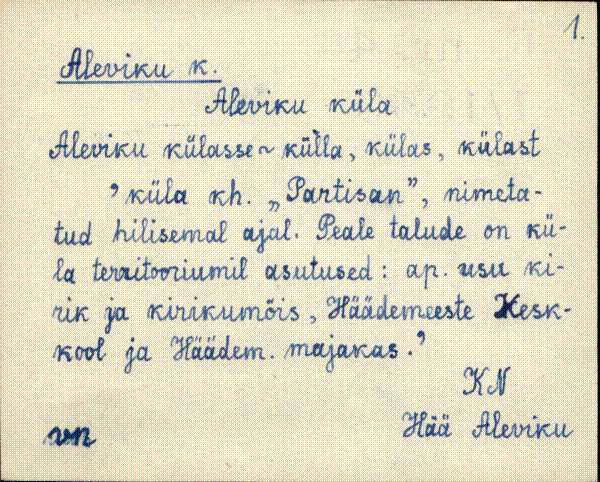 1.
Aleviku k.
Aleviku küla
Aleviku külasse ~ külla, külas, külast
’küla kh. „Partisan”, nimeta-
tud hilisemal ajal. Peale talude on kü-
la territooriumil asutused: ap. usu ki-
rik ja kirikumõis, Häädemeeste Kesk-
kool ja Häädem. majakas.’
KN
Hää Aleviku
vn